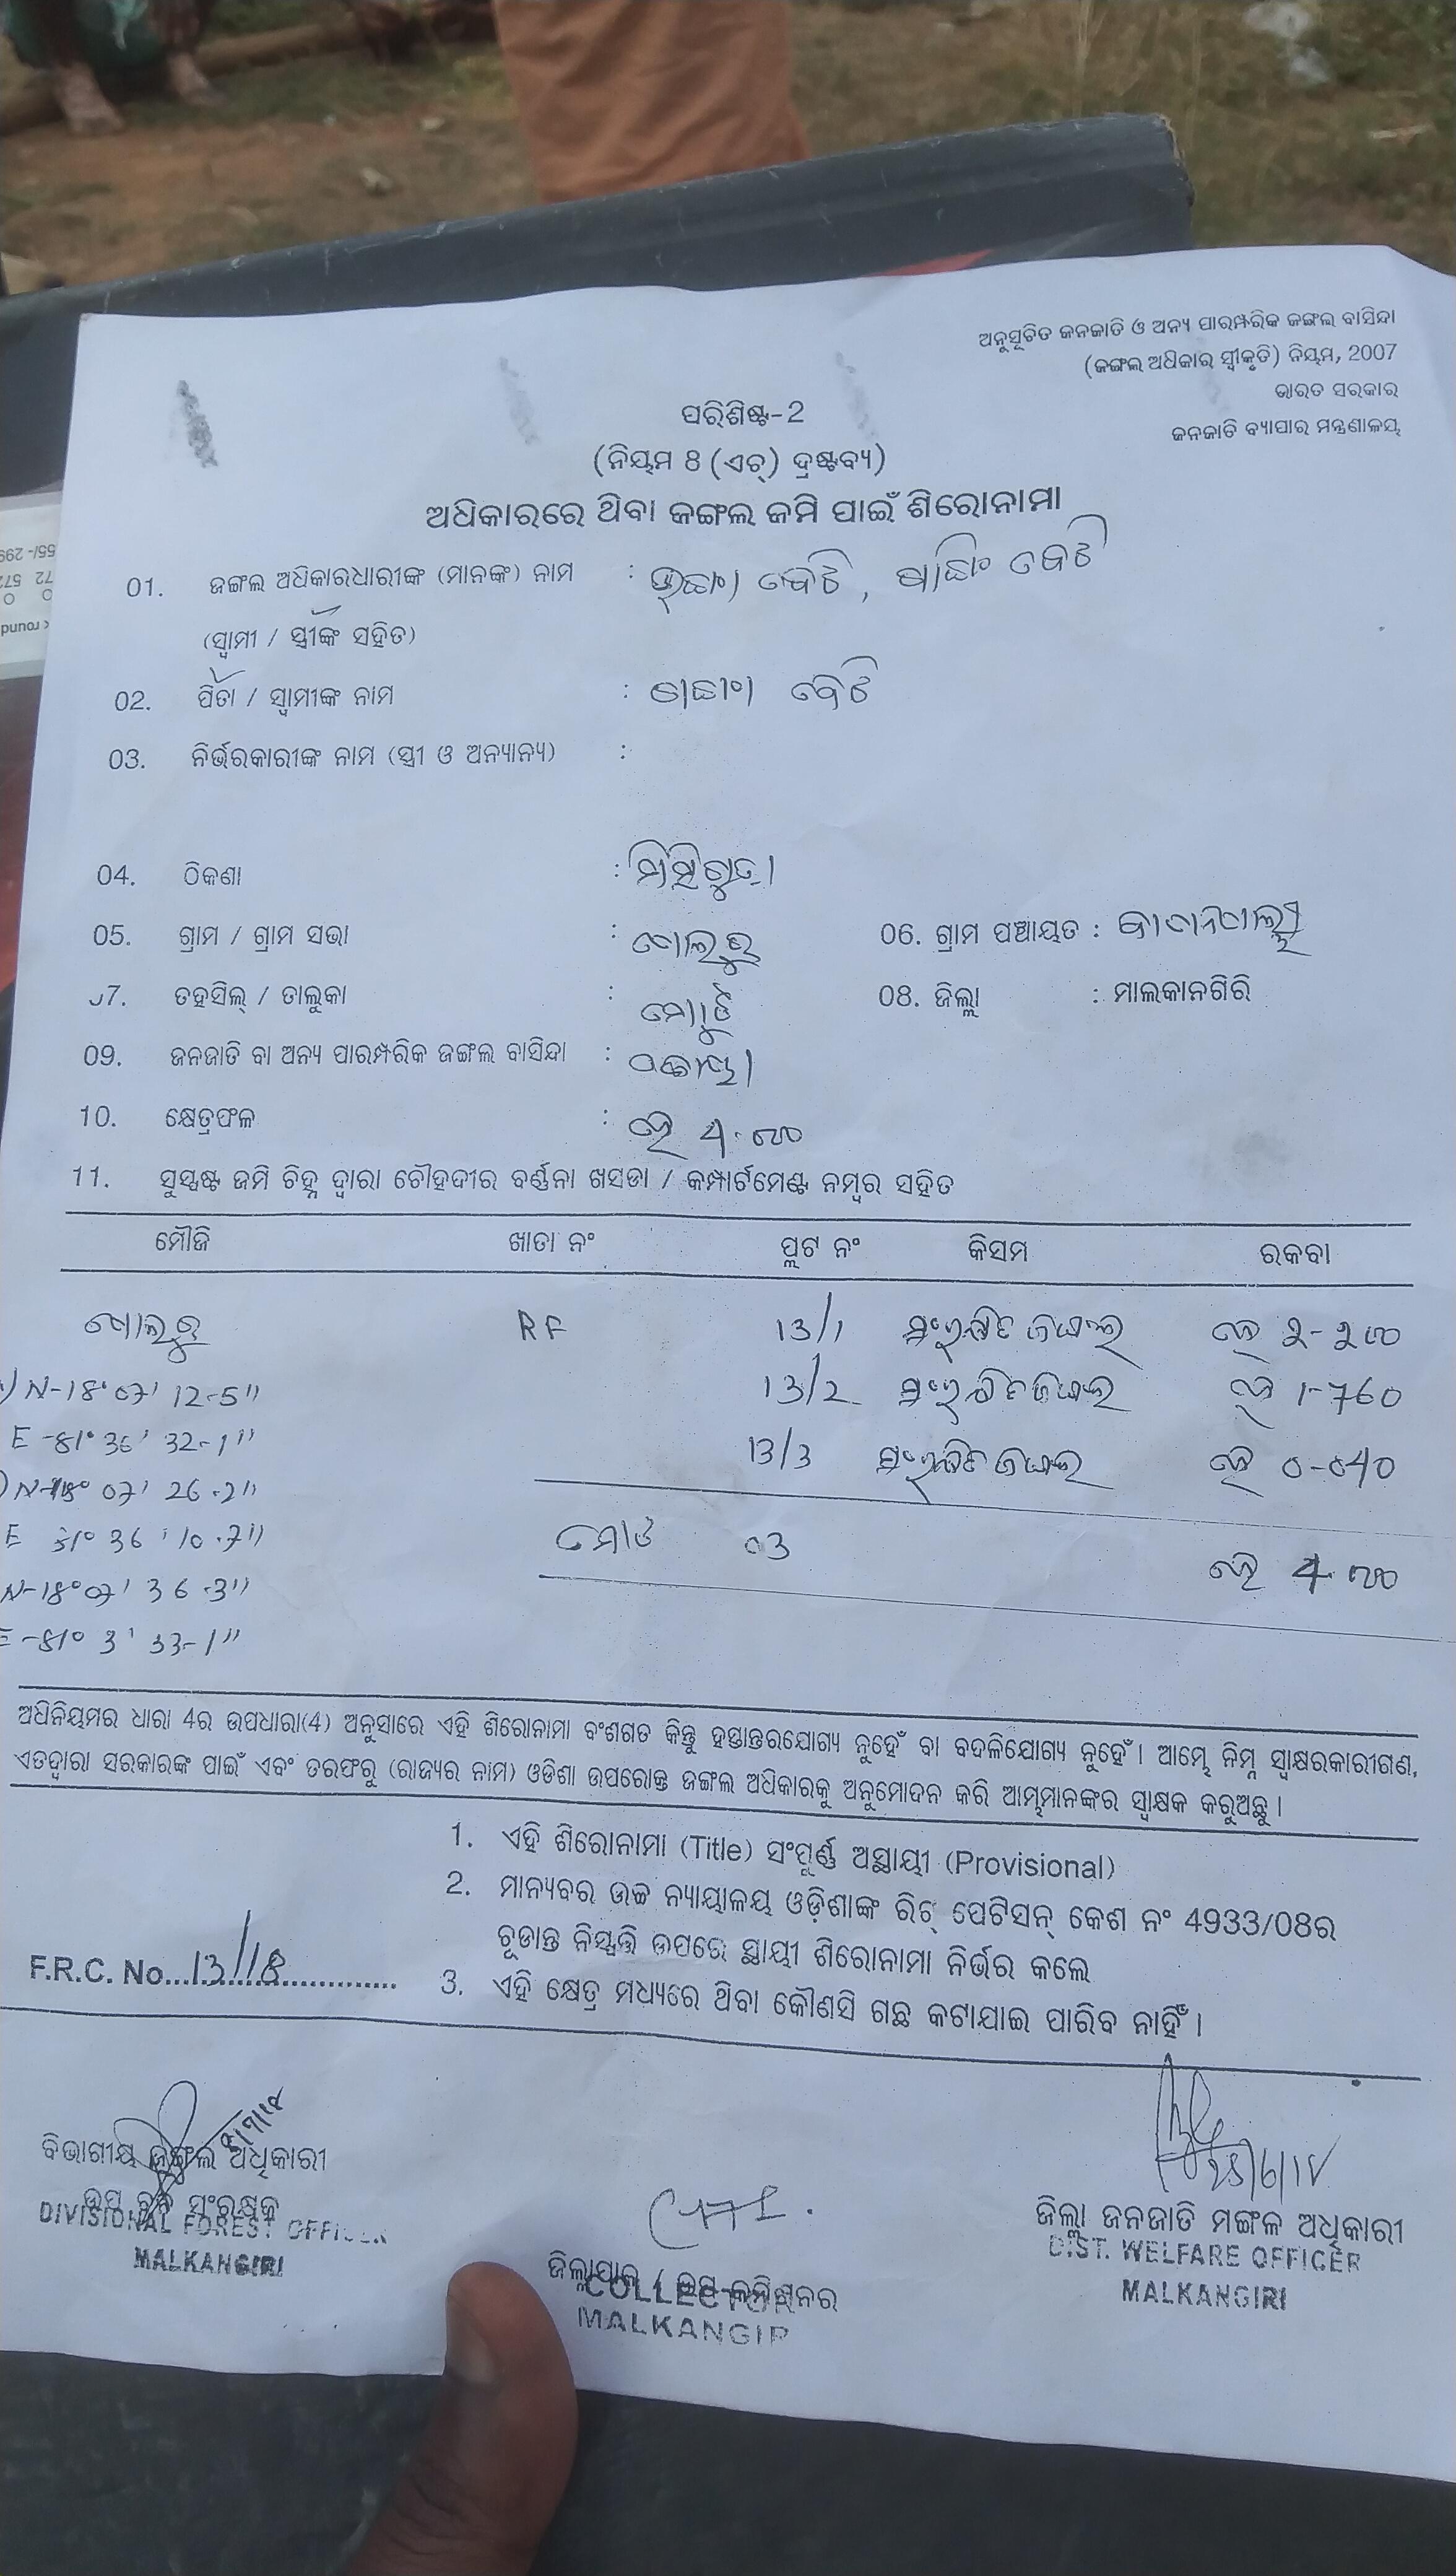 ଅନୁସୂଚିତ ଜନଜାତି ଓ ଅନ୍ୟ ପାରମ୍ପରିକ ଜଙ୍ଗଲ ବାସିନ୍ଦା
(ଜଙ୍ଗଲ ଅଧିକାର ସ୍ୱୀକୃତି) ନିୟମ, 2007
ଭାରତ ସରକାର
ଜନଜାତି ବ୍ୟାପାର ମନ୍ତ୍ରଣାଳୟ
ପରିଶିଷ୍ଟ-2
(ନିୟମ 8 (ଏଚ୍) ଦ୍ରଷ୍ଟବ୍ୟ)
ଅଧିକାରରେ ଥିବା ଜଙ୍ଗଲ ଜମି ପାଇଁ ଶିରୋନାମା
01. ଜଙ୍ଗଲ ଅଧିକାରଧାରୀଙ୍କ (ମାନଙ୍କ) ନାମ :
(ସ୍ୱାମୀ / ସ୍ତ୍ରୀଙ୍କ ସହିତ)
02. ପିତା / ସ୍ୱାମୀଙ୍କ ନାମ :
03. ନିର୍ଭରକାରୀଙ୍କ ନାମ (ସ୍ତ୍ରୀ ଓ ଅନ୍ୟାନ୍ୟ) :
04. ଠିକଣା :
05. ଗ୍ରାମ / ଗ୍ରାମ ସଭା : 06. ଗ୍ରାମ ପଞ୍ଚାୟତ :
07. ତହସିଲ୍ / ତାଲୁକା : 08. ଜିଲ୍ଲା : ମାଲକାନଗିରି
09. ଜନଜାତି ବା ଅନ୍ୟ ପାରମ୍ପରିକ ଜଙ୍ଗଲ ବାସିନ୍ଦା :
10. କ୍ଷେତ୍ରଫଳ : ହେ 4.00
11. ସୁସ୍ପଷ୍ଟ ଜମି ଚିହ୍ନ ଦ୍ୱାରା ଚୌହଦୀର ବର୍ଣ୍ଣନା ଖସଡା / କମ୍ପାର୍ଟମେଣ୍ଟ ନମ୍ବର ସହିତ
ମୌଜି ଖାତା ନଂ ପ୍ଲଟ ନଂ କିସମ ରକବା
RF 13/1 ସଂରକ୍ଷିତ ଜଙ୍ଗଲ ହେ 2-200
N-18° 07' 12-5" 13/2 ସଂରକ୍ଷିତ ଜଙ୍ଗଲ ହେ 1-760
E -81° 36' 32-1" 13/3 ସଂରକ୍ଷିତ ଜଙ୍ଗଲ ହେ 0-040
N-18° 07' 26.2"
E 81° 36' 10.7" ମୋଟ 03 ହେ 4.00
N-18° 07' 36.3"
E -81° 3' 33-1"
ଅଧିନିୟମର ଧାରା 4ର ଉପଧାରା(4) ଅନୁସାରେ ଏହି ଶିରୋନାମା ବଂଶଗତ କିନ୍ତୁ ହସ୍ତାନ୍ତରଯୋଗ୍ୟ ନୁହେଁ ବା ବଦଳିଯୋଗ୍ୟ ନୁହେଁ। ଆମ୍ଭେ ନିମ୍ନ ସ୍ୱାକ୍ଷରକାରୀଗଣ,
ଏତଦ୍ୱାରା ସରକାରଙ୍କ ପାଇଁ ଏବଂ ତରଫରୁ (ରାଜ୍ୟର ନାମ) ଓଡିଶା ଉପରୋକ୍ତ ଜଙ୍ଗଲ ଅଧିକାରକୁ ଅନୁମୋଦନ କରି ଆମ୍ଭମାନଙ୍କର ସ୍ୱାକ୍ଷକ କରୁଅଛୁ।
1. ଏହି ଶିରୋନାମା (Title) ସଂପୂର୍ଣ୍ଣ ଅସ୍ଥାୟୀ (Provisional)
2. ମାନ୍ୟବର ଉଚ୍ଚ ନ୍ୟାୟାଳୟ ଓଡ଼ିଶାଙ୍କ ରିଟ୍ ପେଟିସନ୍ କେଶ ନଂ 4933/08ର
ଚୂଡାନ୍ତ ନିସ୍ପତ୍ତି ଉପରେ ସ୍ଥାୟୀ ଶିରୋନାମା ନିର୍ଭର କଲେ
F.R.C. No...13/18............
3. ଏହି କ୍ଷେତ୍ର ମଧ୍ୟରେ ଥିବା କୌଣସି ଗଛ କଟାଯାଇ ପାରିବ ନାହିଁ।
ବିଭାଗୀୟ ଜଙ୍ଗଲ ଅଧିକାରୀ
ଉପ ବନ ସଂରକ୍ଷକ
DIVISIONAL FOREST OFFICER
MALKANGIRI
ଜିଲ୍ଲାପାଳ / ଉପ-କମିଶନର
COLLECTOR
MALKANGIR
25/6/18
ଜିଲ୍ଲା ଜନଜାତି ମଙ୍ଗଳ ଅଧିକାରୀ
DIST. WELFARE OFFICER
MALKANGIRI